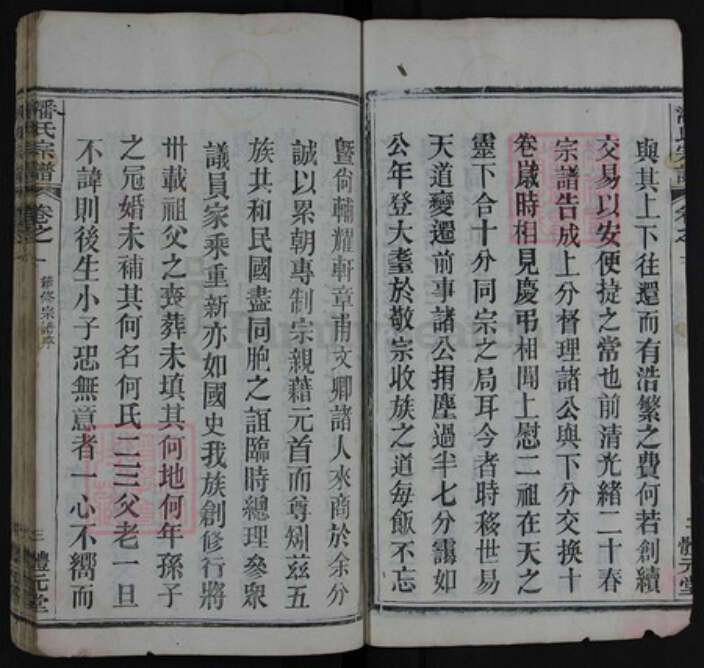 與其上下往還而有浩繁之費何若創續
交易以安便捷之常也前清光緒二十春
宗譜告成上分督理諸公與下分交換十
卷歲時相見慶弔相聞上慰二祖在天之
靈下合十分同宗之局耳今者時移世易
天道變遷前事諸公捐塵過半七分靄如
公年登大耋於敬宗收族之道每飯不忘
潘氏宗譜
卷之一
續修宗譜序
三
體元堂
暨尙輔耀軒章甫文卿諸人來商於余分
誠以累朝專制宗親藉元首而尊矧茲五
族共和民國盡同胞之誼臨時總理參眾
議員家乘重新亦如國史我族創修行將
卅載祖父之喪葬未填其何地何年孫子
之冠婚未補其何名何氏二三父老一旦
不諱則後生小子恐無意者一心不嚮而